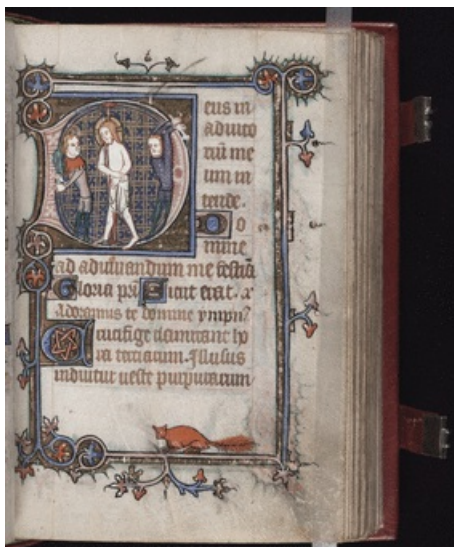 eus in
adiuto
riū me
um in
tende.
Do
mine
ad adiuuandum me festia
Gloria pri Sicut erat. x
Adoramus te domine ympn?
Crucifige clamitant ho
ra terciarum. Illusus
induitur ueste purpurarum